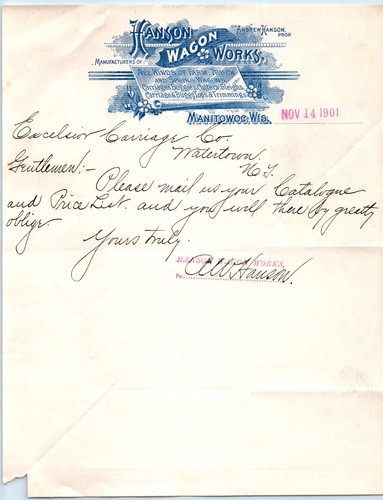 HANSON
WAGON
WORKS.
ANDREW HANSON,
PROP.
MANUFACTURERS OF
ALL KINDS OF FARM, TRUCK
AND SPRING WAGONS,
Carriages, Buggies, Cutters, Sleighs,
Carriage & Buggy Tops & Trimmings.
MANITOWOC, WIS.
NOV 14 1901
Excelsior Carriage Co.
Watertown.
N.Y.
Gentlemen:-
Please mail us your Catalogue
and Price List. and you will there by greatly
oblige.
Yours truly.
HANSON WAGON WORKS,
Per Hanson.